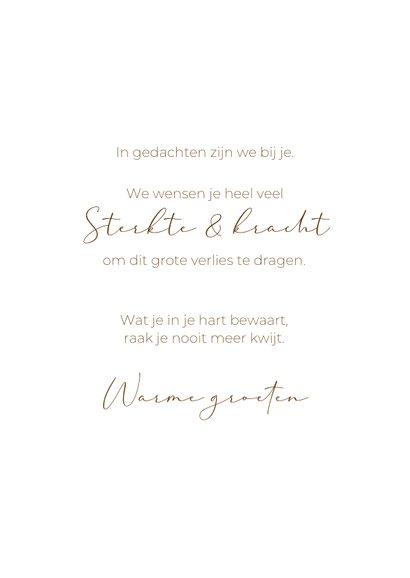 In gedachten zijn we bij je.
We wensen je heel veel
Sterkte & kracht
om dit grote verlies te dragen.
Wat je in je hart bewaart,
raak je nooit meer kwijt.
Warme groeten